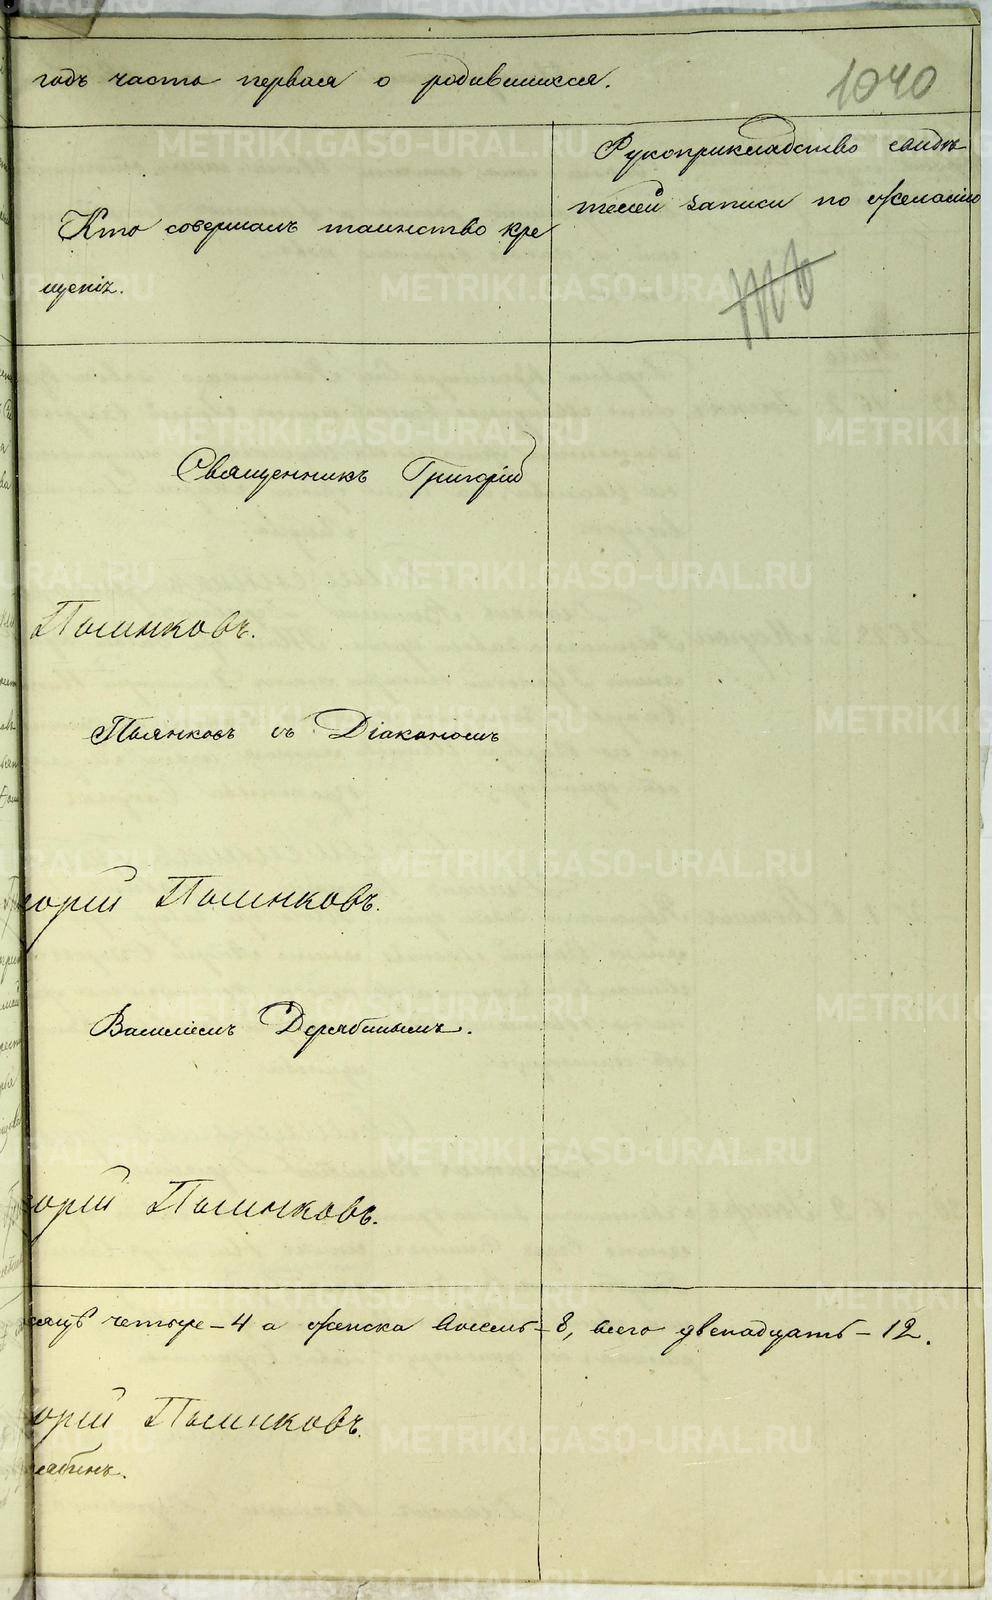 годъ часть первая о родившихся.
1040
Кто совершалъ таинство кре
щенія.
Рукоприкладство свидѣ
телей записи по желанію
Священникъ Григорій
Пьянковъ.
Пьянковъ съ Діакономъ
орій Пьянковъ.
Василіемъ Дерябинымъ.
орій Пьянковъ.
четыре - 4 а женска восемь - 8, всего двенадцать - 12.
орій Пьянковъ.
ябинъ.
METRIKI.GASO-URAL.RU